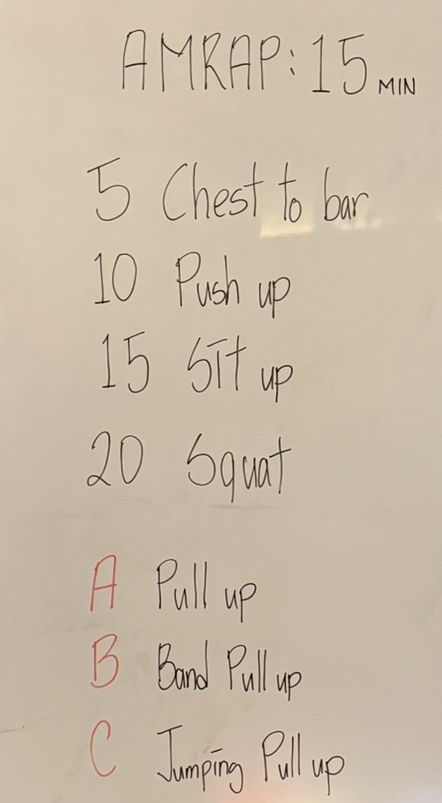 AMRAP: 15 MIN
5 Chest to bar
10 Push up
15 Sit up
20 Squat
A Pull up
B Band Pull up
C Jumping Pull up